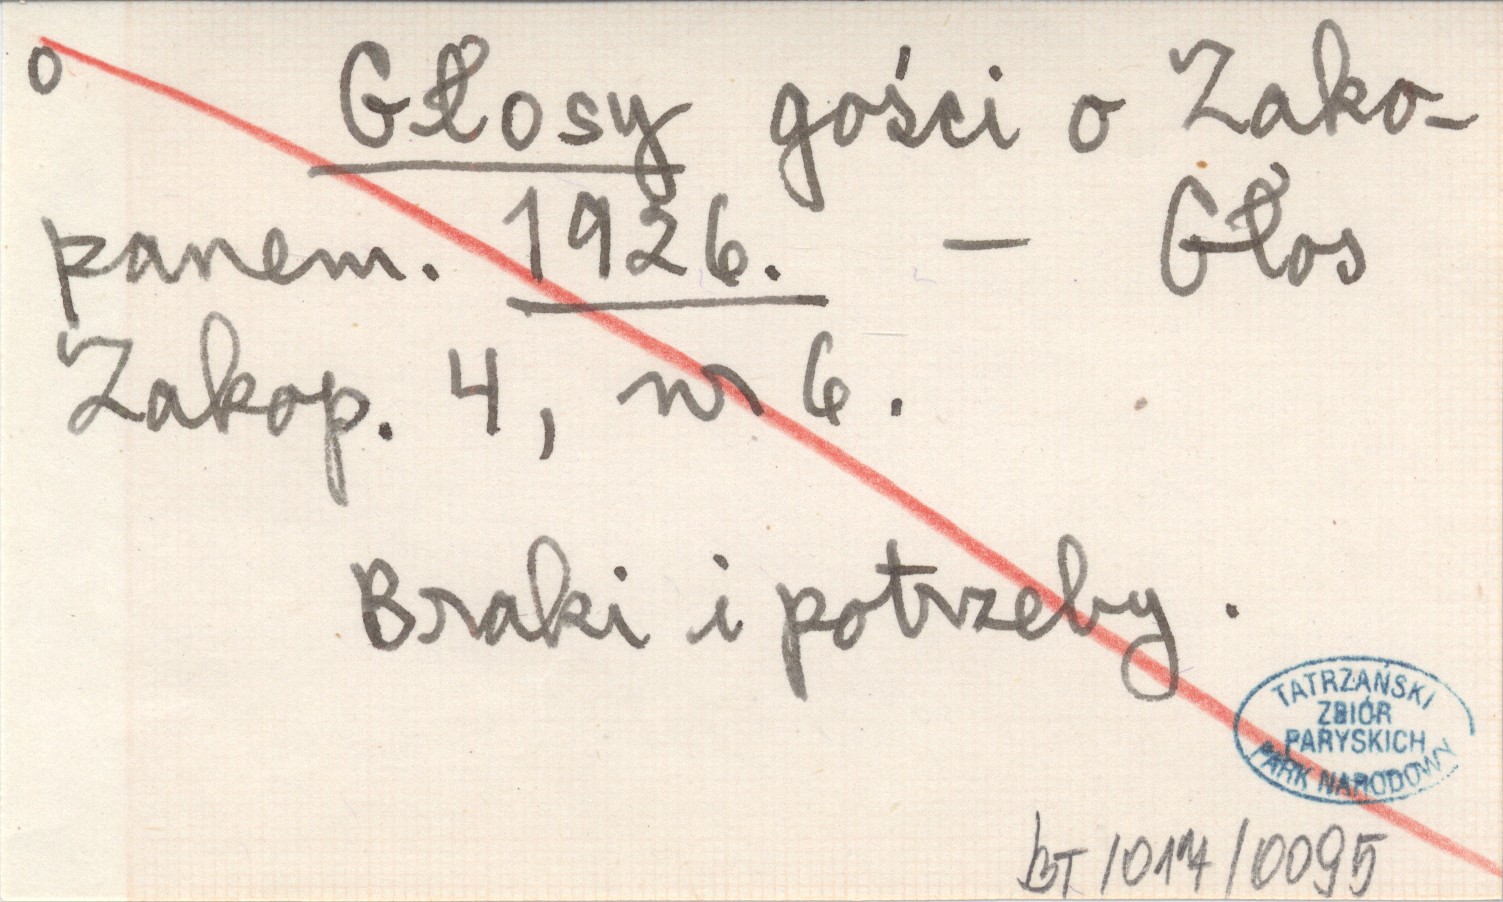 o
Głosy gości o Zako-
panem. 1926. — Głos
Zakop. 4, nr 6.
Braki i potrzeby.
TATRZAŃSKI
ZBIÓR
PARYSKICH
PARK NARODOWY
BT/017/0095